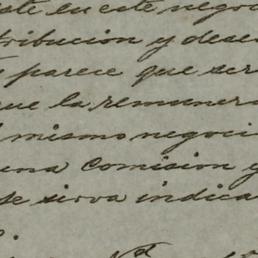 este en este negoc
tribucion y dese
parece que ser
que la remuner
mismo negoci
una comision y
se sirva indica